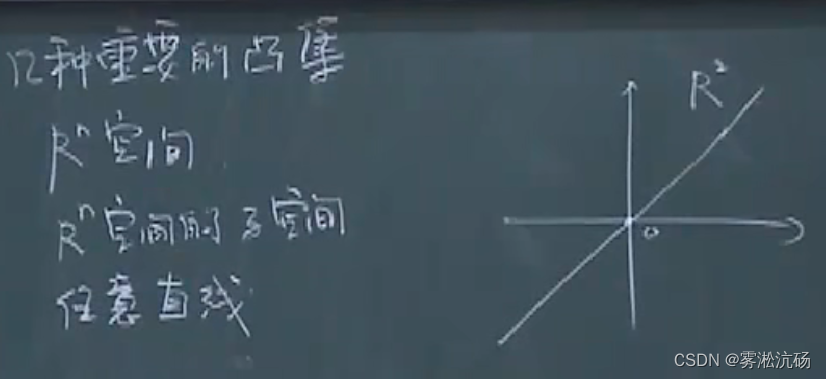 几种重要的凸集
Rⁿ空间
Rⁿ空间的子空间
任意直线
R²
0
CSDN @雾淞沆砀